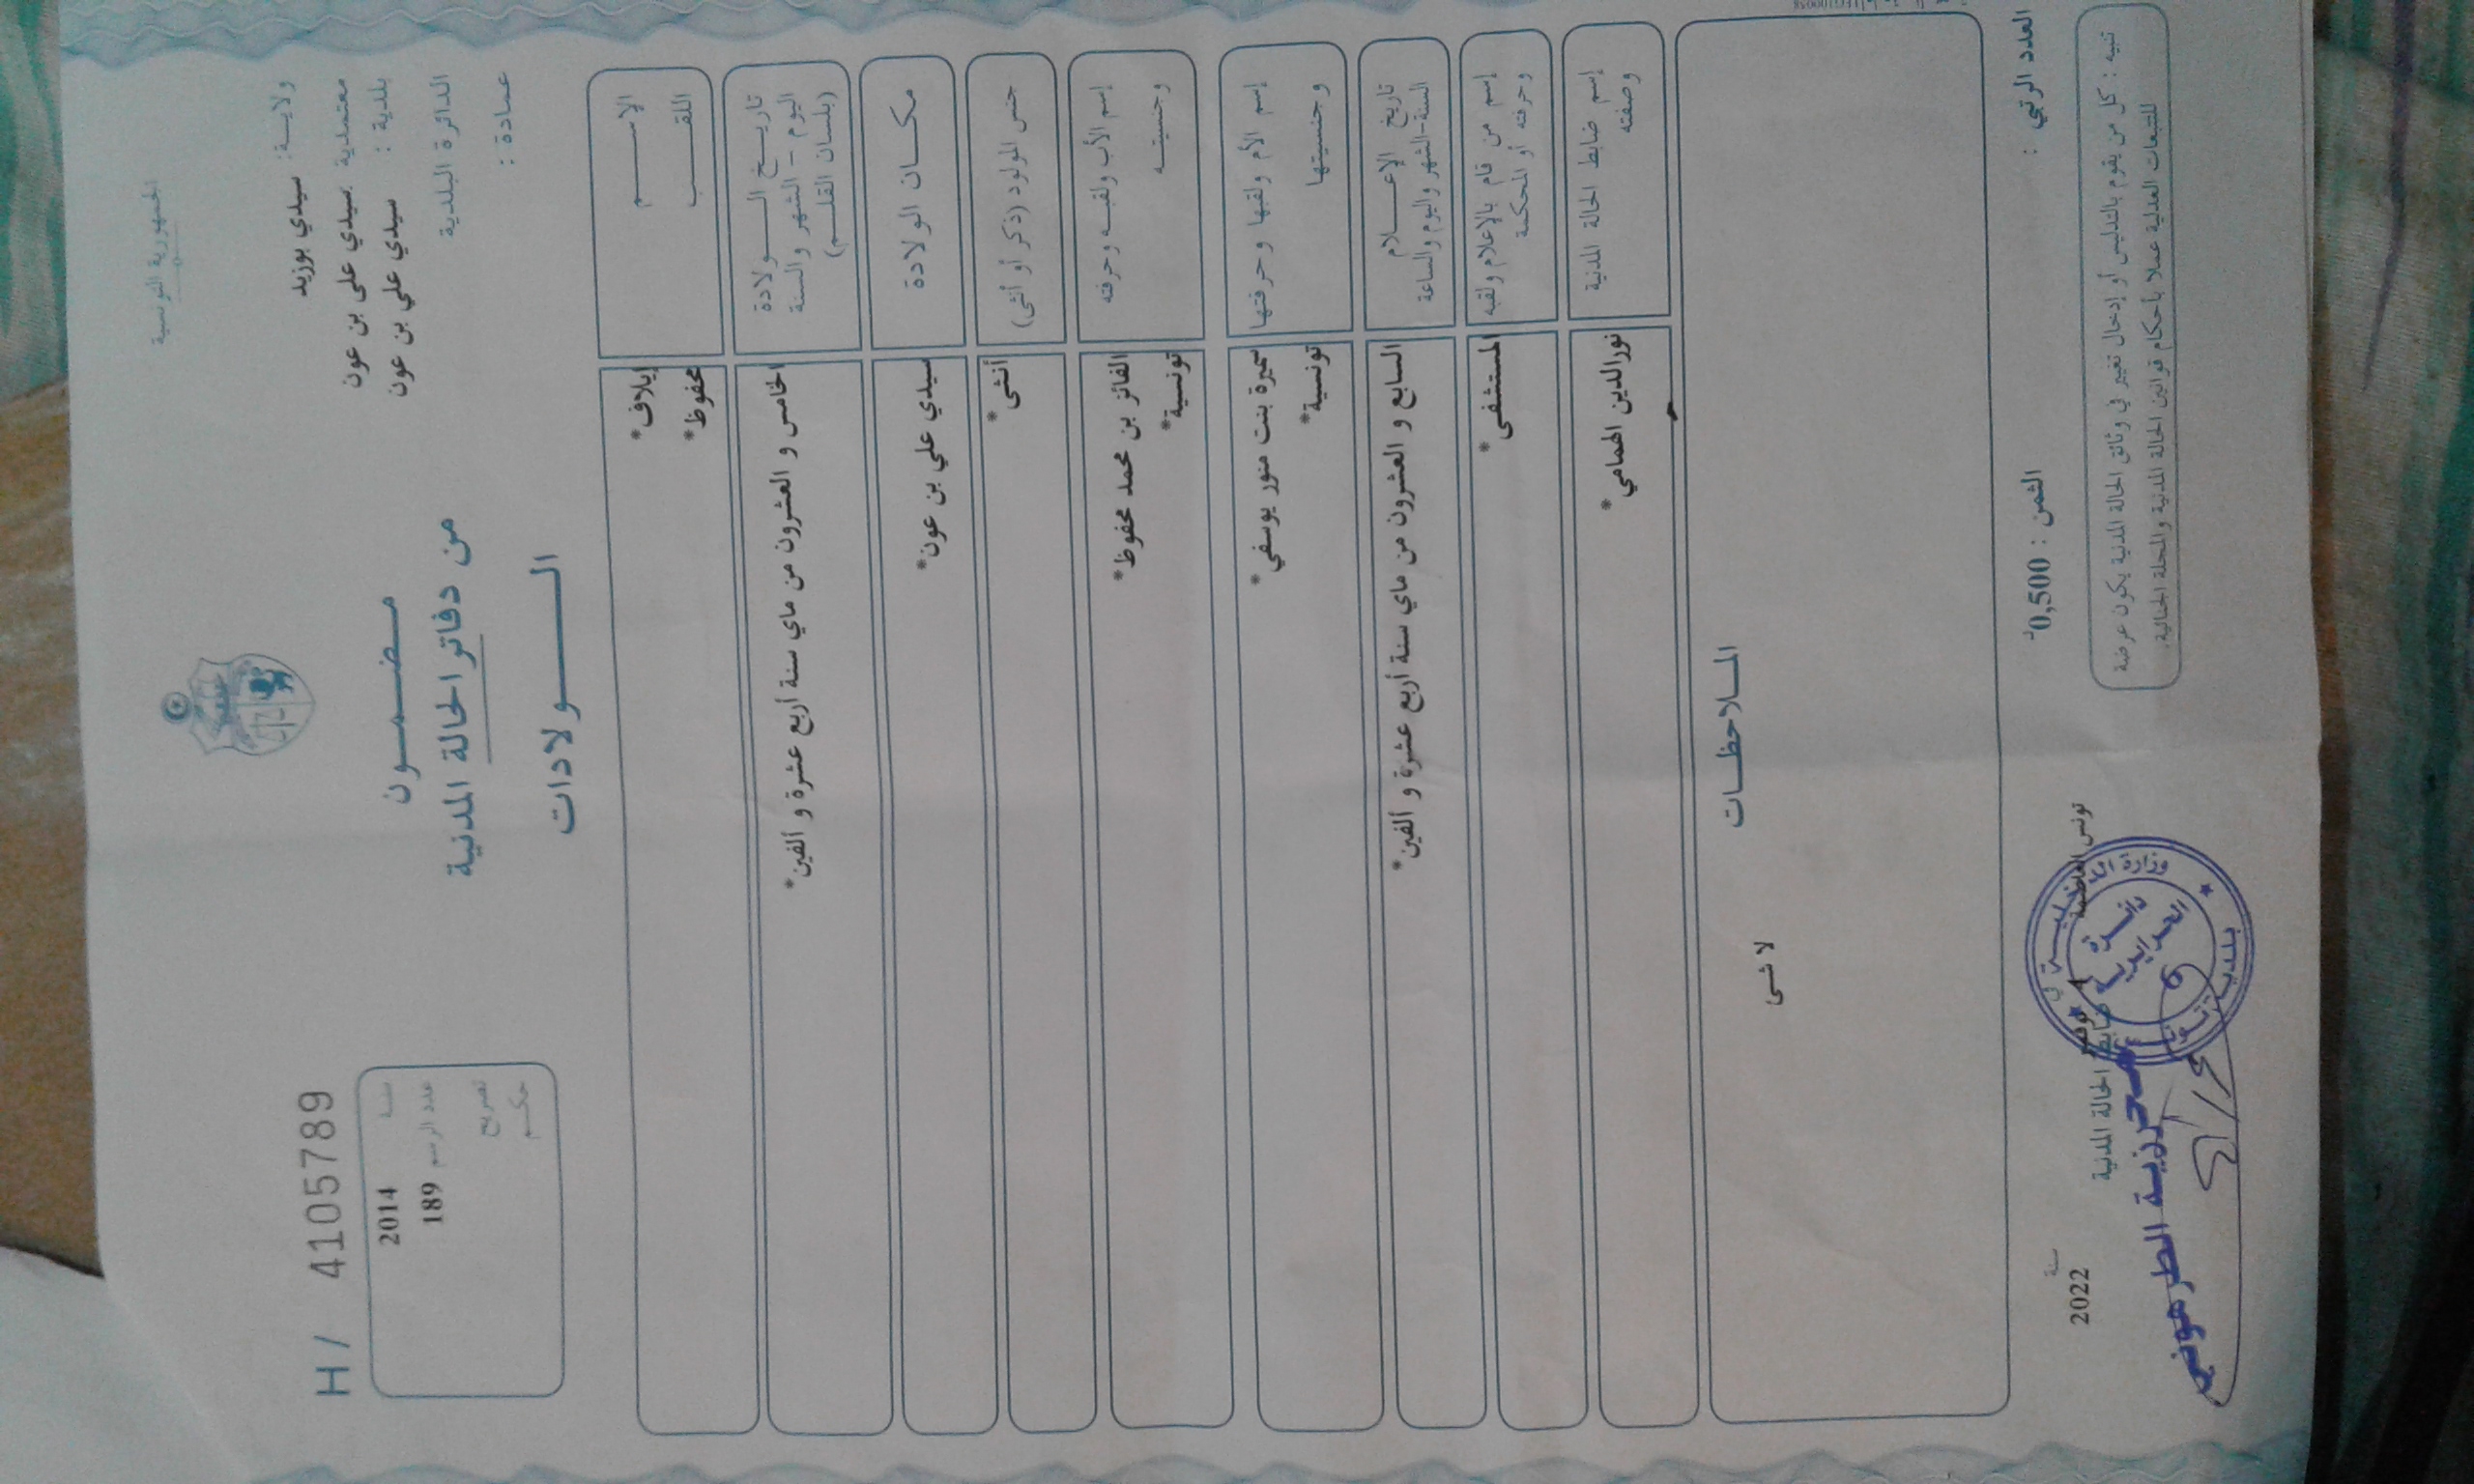 الجمهورية التونسية
ولاية: سيدي بوزيد
معتمدية سيدي علي بن عون
بلدية : سيدي علي بن عون
الدائرة البلدية
عمادة :
H/ 4105789
سنة 2014
عدد الرسم 189
تصريح
حكم
مضمون
من دفاتر الحالة المدنية
الولادات
الإسم إيلاف*
اللقب محفوظ*
تاريخ الولادة
اليوم - الشهر والسنة
(بلسان القلم)
الخامس و العشرون من ماي سنة أربع عشرة و ألفين*
مكان الولادة سيدي علي بن عون*
جنس المولود (ذكر أو أنثى) أنثى*
إسم الأب ولقبه وحرفته الفائز بن محمد محفوظ*
وجنسيته تونسية*
إسم الأم ولقبها وحرفتها سميرة بنت منور يوسفي*
وجنسيتها تونسية*
تاريخ الإعلام
السنة-الشهر واليوم والساعة
السابع و العشرون من ماي سنة أربع عشرة و ألفين*
إسم من قام بالإعلام ولقبه
وحرفته أو المحكمة
المستشفى*
إسم ضابط الحالة المدنية
وصفته
نورالدين الهمامي*
الملاحظات
لا شىء
العدد الرتبي :
الثمن : 0,500د
تونس العاصمة
سنة 2022
ضابط الحالة المدنية
محرزية الطرهوني
تنبيه : كل من يقوم بالتدليس أو إدخال تغيير في وثائق الحالة المدنية يكون عرضة
للتتبعات العدلية عملا بأحكام قوانين الحالة المدنية والمجلة الجنائية.